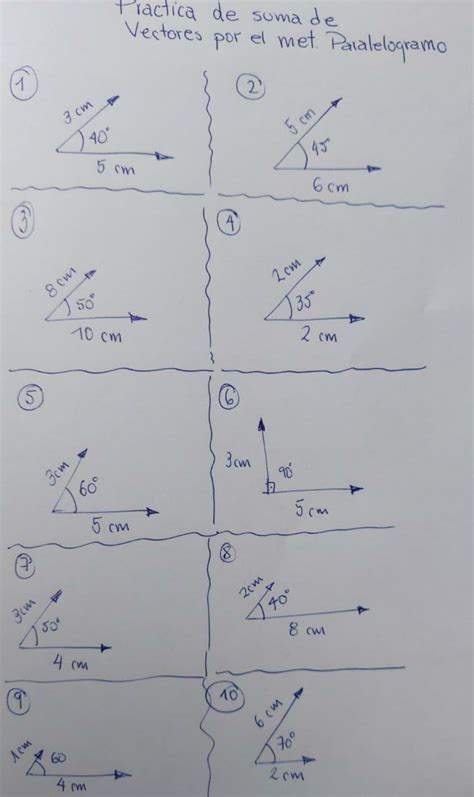 Practica de suma de
Vectores por el met. Paralelogramo
1
3 cm
40°
5 cm
2
5 cm
45°
6 cm
3
8 cm
50°
10 cm
4
2 cm
35°
2 cm
5
3 cm
60°
5 cm
6
3 cm
90°
5 cm
7
3 cm
50°
4 cm
8
2 cm
40°
8 cm
9
1 cm
60
4 cm
10
6 cm
70°
2 cm